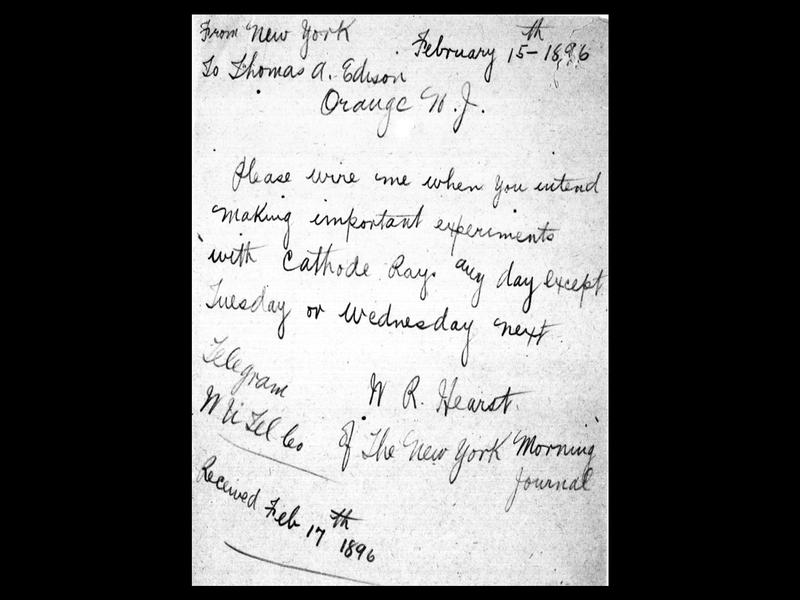 From New York
February 15th - 1896
To Thomas A. Edison
Orange N.J.
Please wire me when you intend
making important experiments
with Cathode Rays any day except
Tuesday or Wednesday next
W R. Hearst.
of The New York Morning
Journal
Telegram
W U Tel Co
Received Feb 17th
1896